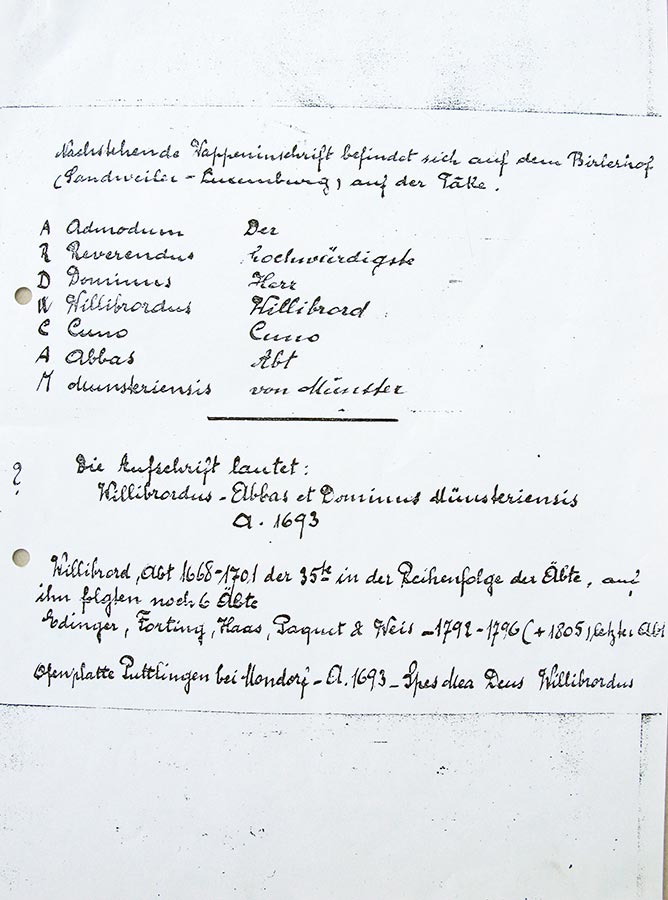 Nachstehende Wappeninschrift befindet sich auf dem Birlerhof
(Sandweiler - Luxemburg) auf der Täke.
A Admodum Der
R Reverendus hochwürdigste
D Dominus Herr
W Willibrordus Willibrord
C Cuno Cuno
A Abbas Abt
M Munsteriensis von Münster
? Die Aufschrift lautet:
Willibrordus - Abbas et Dominus Münsteriensis
A. 1693
Willibrord, Abt 1668-1701 der 35te in der Reihenfolge der Äbte, auf
ihn folgten noch 6 Äbte
Edinger, Forting, Haas, Paquet & Weis - 1792 - 1796 (+ 1805), letzter Abt
Ofenplatte Puttlingen bei Mondorf - A. 1693 - Spes Mea Deus Willibrordus